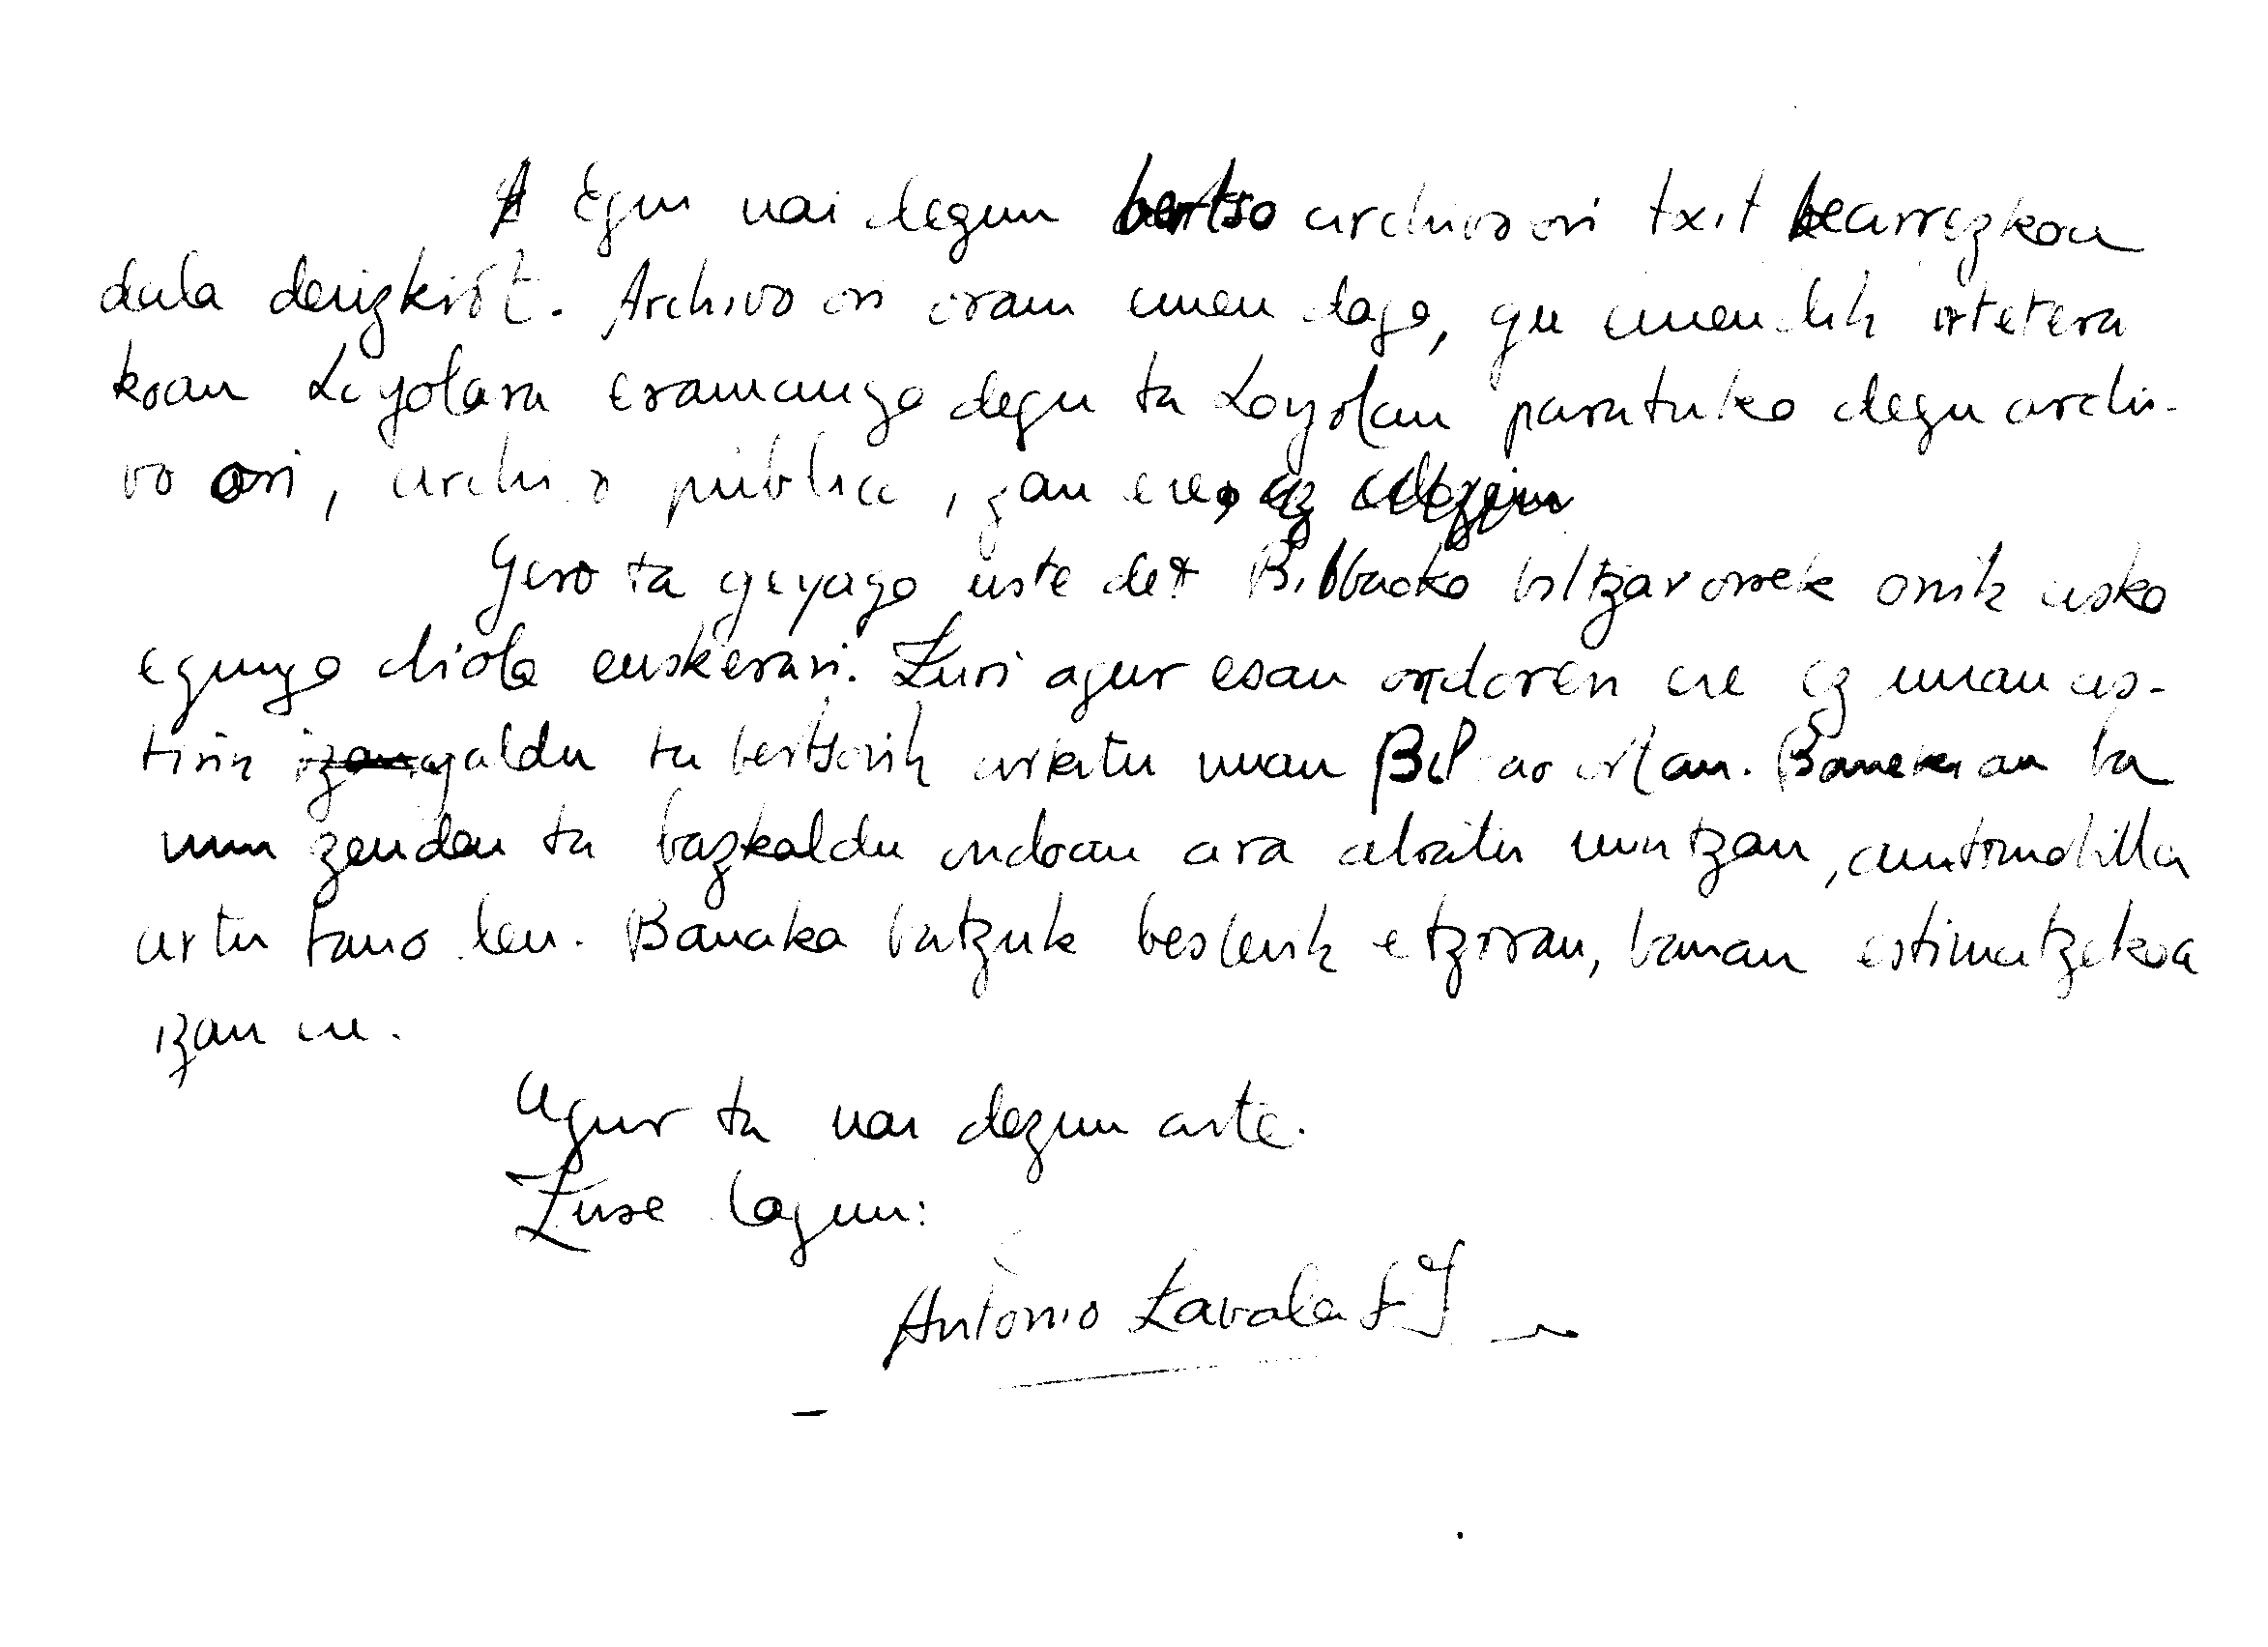 Egin nai degun bertso archivo ori txit bearrezkoa
dala derizkiot. Archivo ori orain emen dago, gu emendik irtetera
koan Loyolara eramango degu ta Loyolan paratuko degu archi-
vo ori, archivo publica, izan ere, ez
Gero ta geyago uste det Bilbaoko biltzar orrek onik asko
egingo diola euskerari. Zuri agur esan ondoren ere ez nuan as-
tirik galdu ta bertsorik arkitu nuan Bilbao ortan. Banekian ba
nun zeuden ta bazkaldu ondoan ara abiatu nintzan, automobilla
artu baño len. Banaka batzuk besterik etziran, bañan estimatzekoa
izan ere.
Agur ta nai dezun arte.
Zure lagun:
Antonio Zavala S.J.